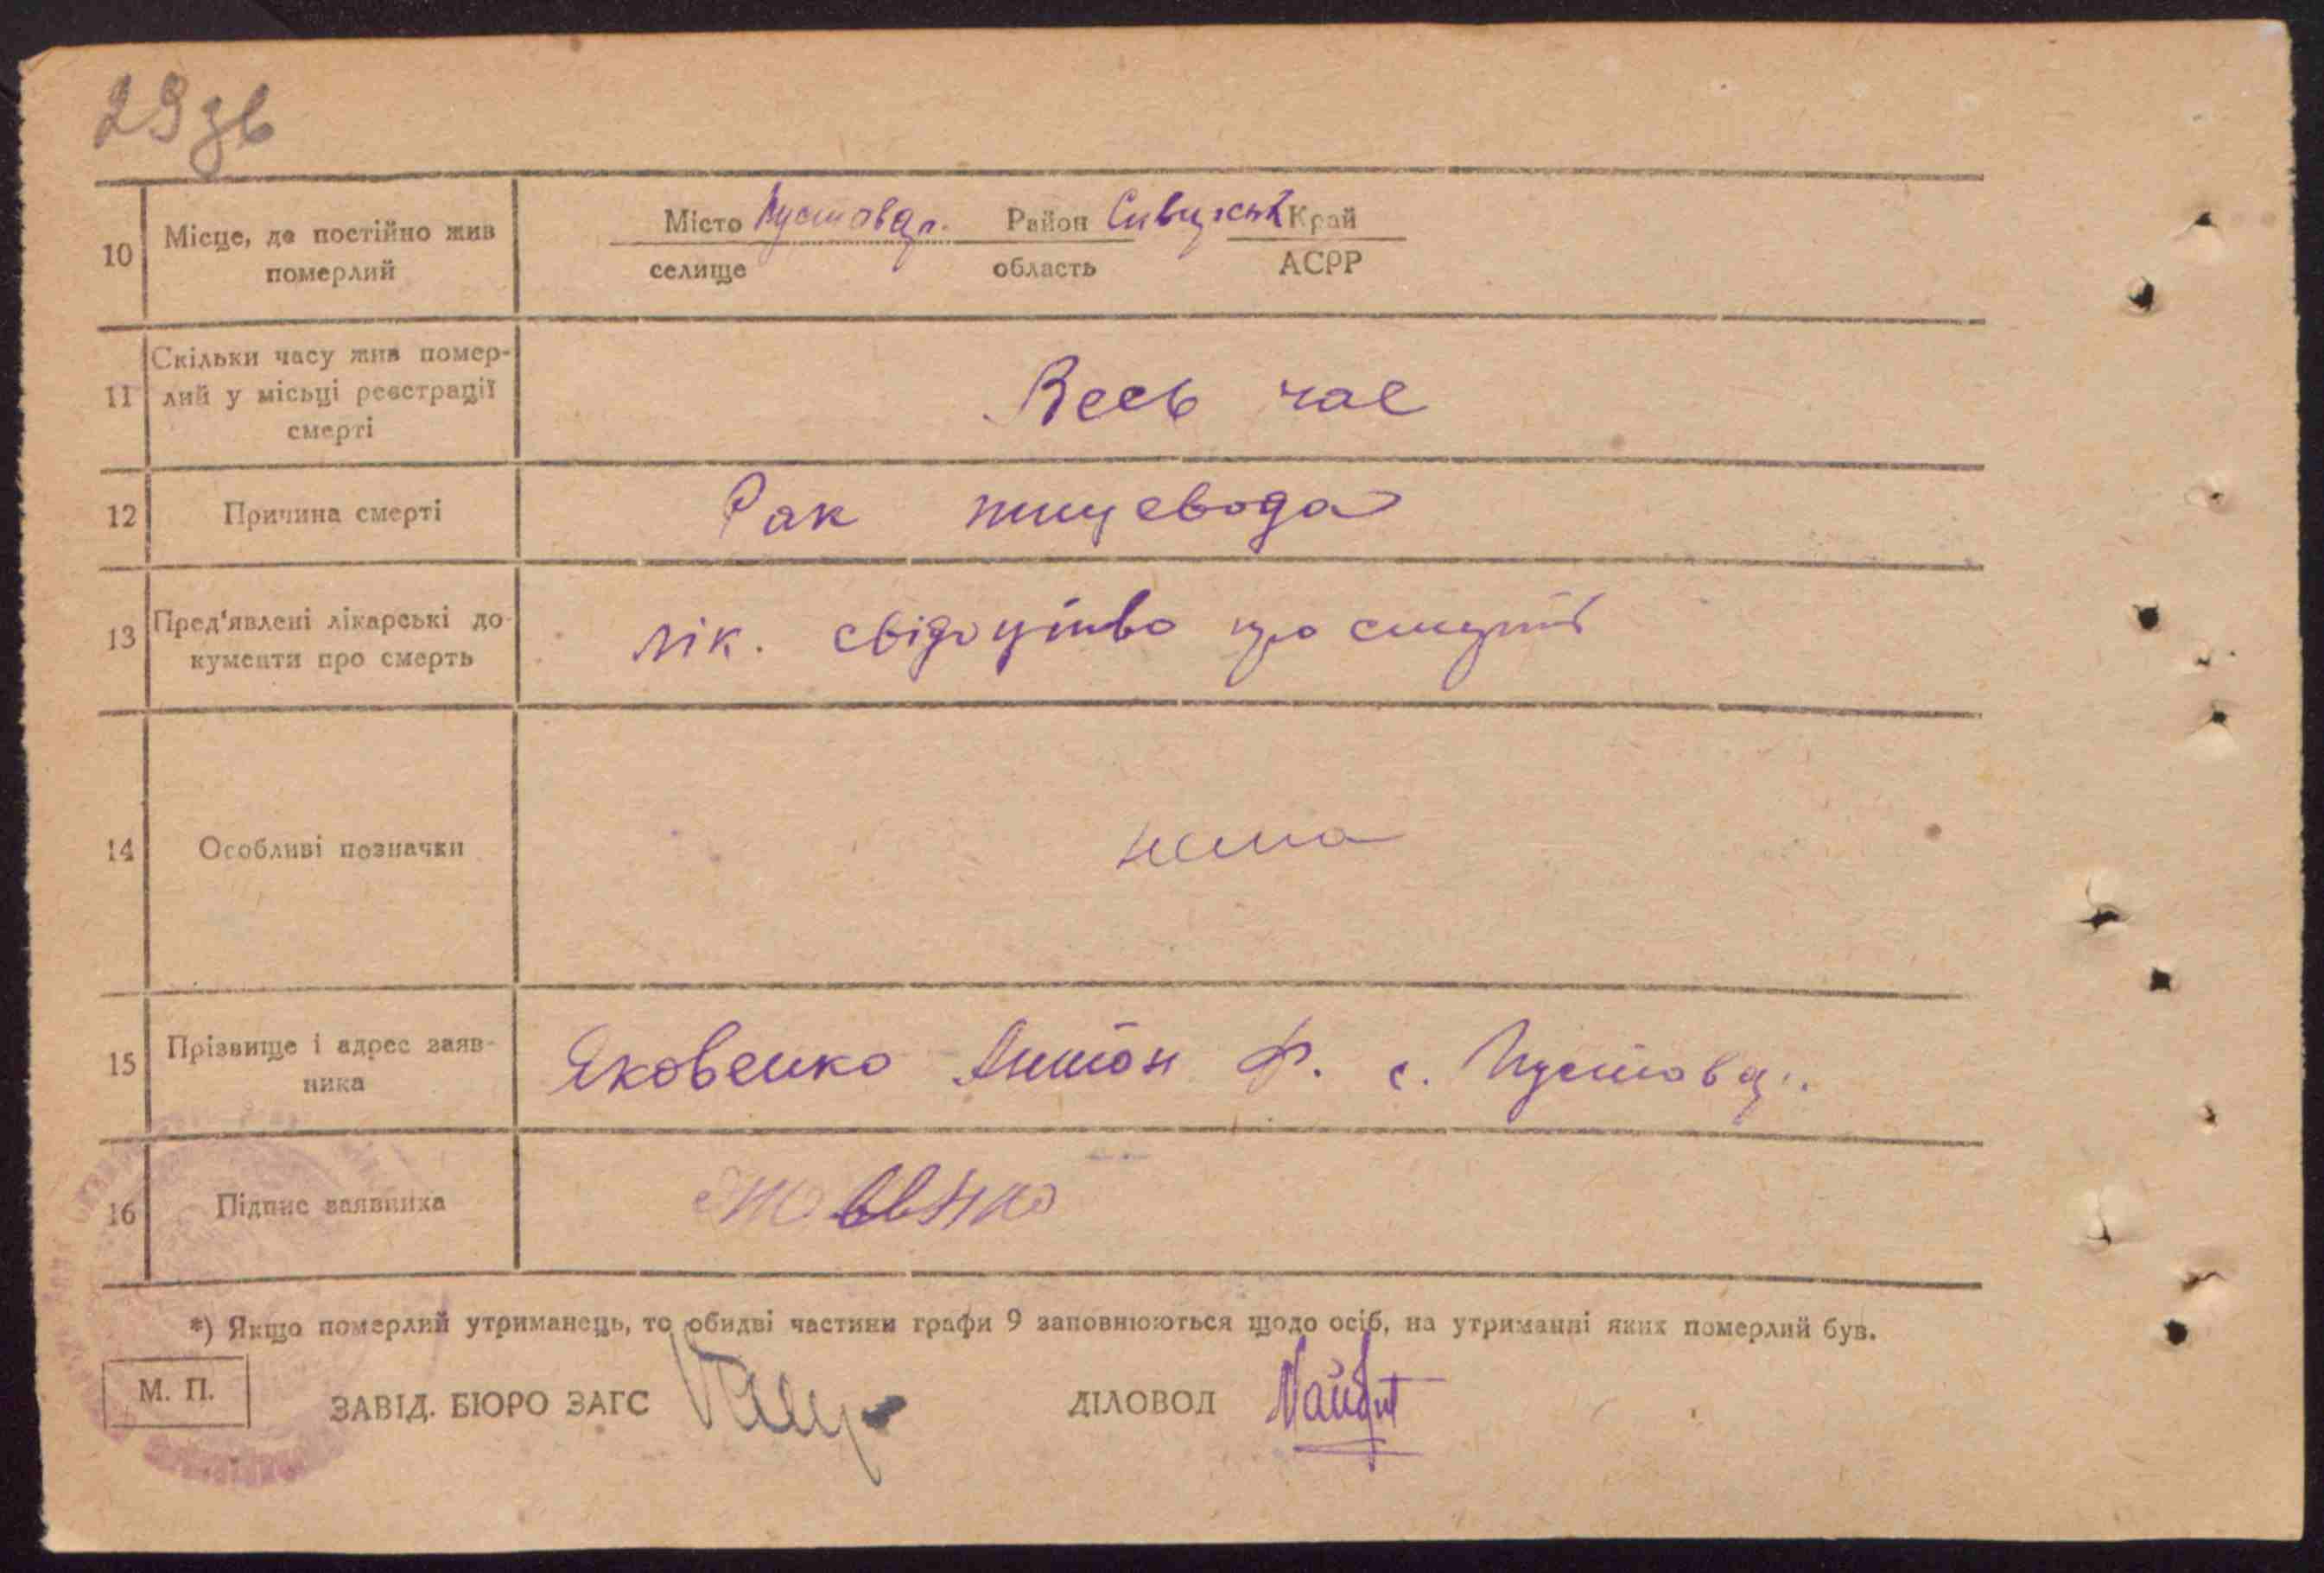 29 зв
10 Місце, де постійно жив померлий Місто Пустовар. Район Сквирськ Край
селище область АСРР
11 Скільки часу жив помер-
лий у місьці реєстрації
смерті
Весь час
12 Причина смерті Рак пищевода
13 Пред'явлені лікарські до-
кументи про смерть
лік. свідоцтво про смерть
14 Особливі позначки нема
15 Прізвище і адрес заяв-
ника
Яковенко Антон Ф. с. Пустовар.
16 Підпис заявника
*) Якщо померлий утриманець, то обидві частини графи 9 заповнюються щодо осіб, на утриманні яких померлий був.
М. П. ЗАВІД. БЮРО ЗАГС ДІЛОВОД